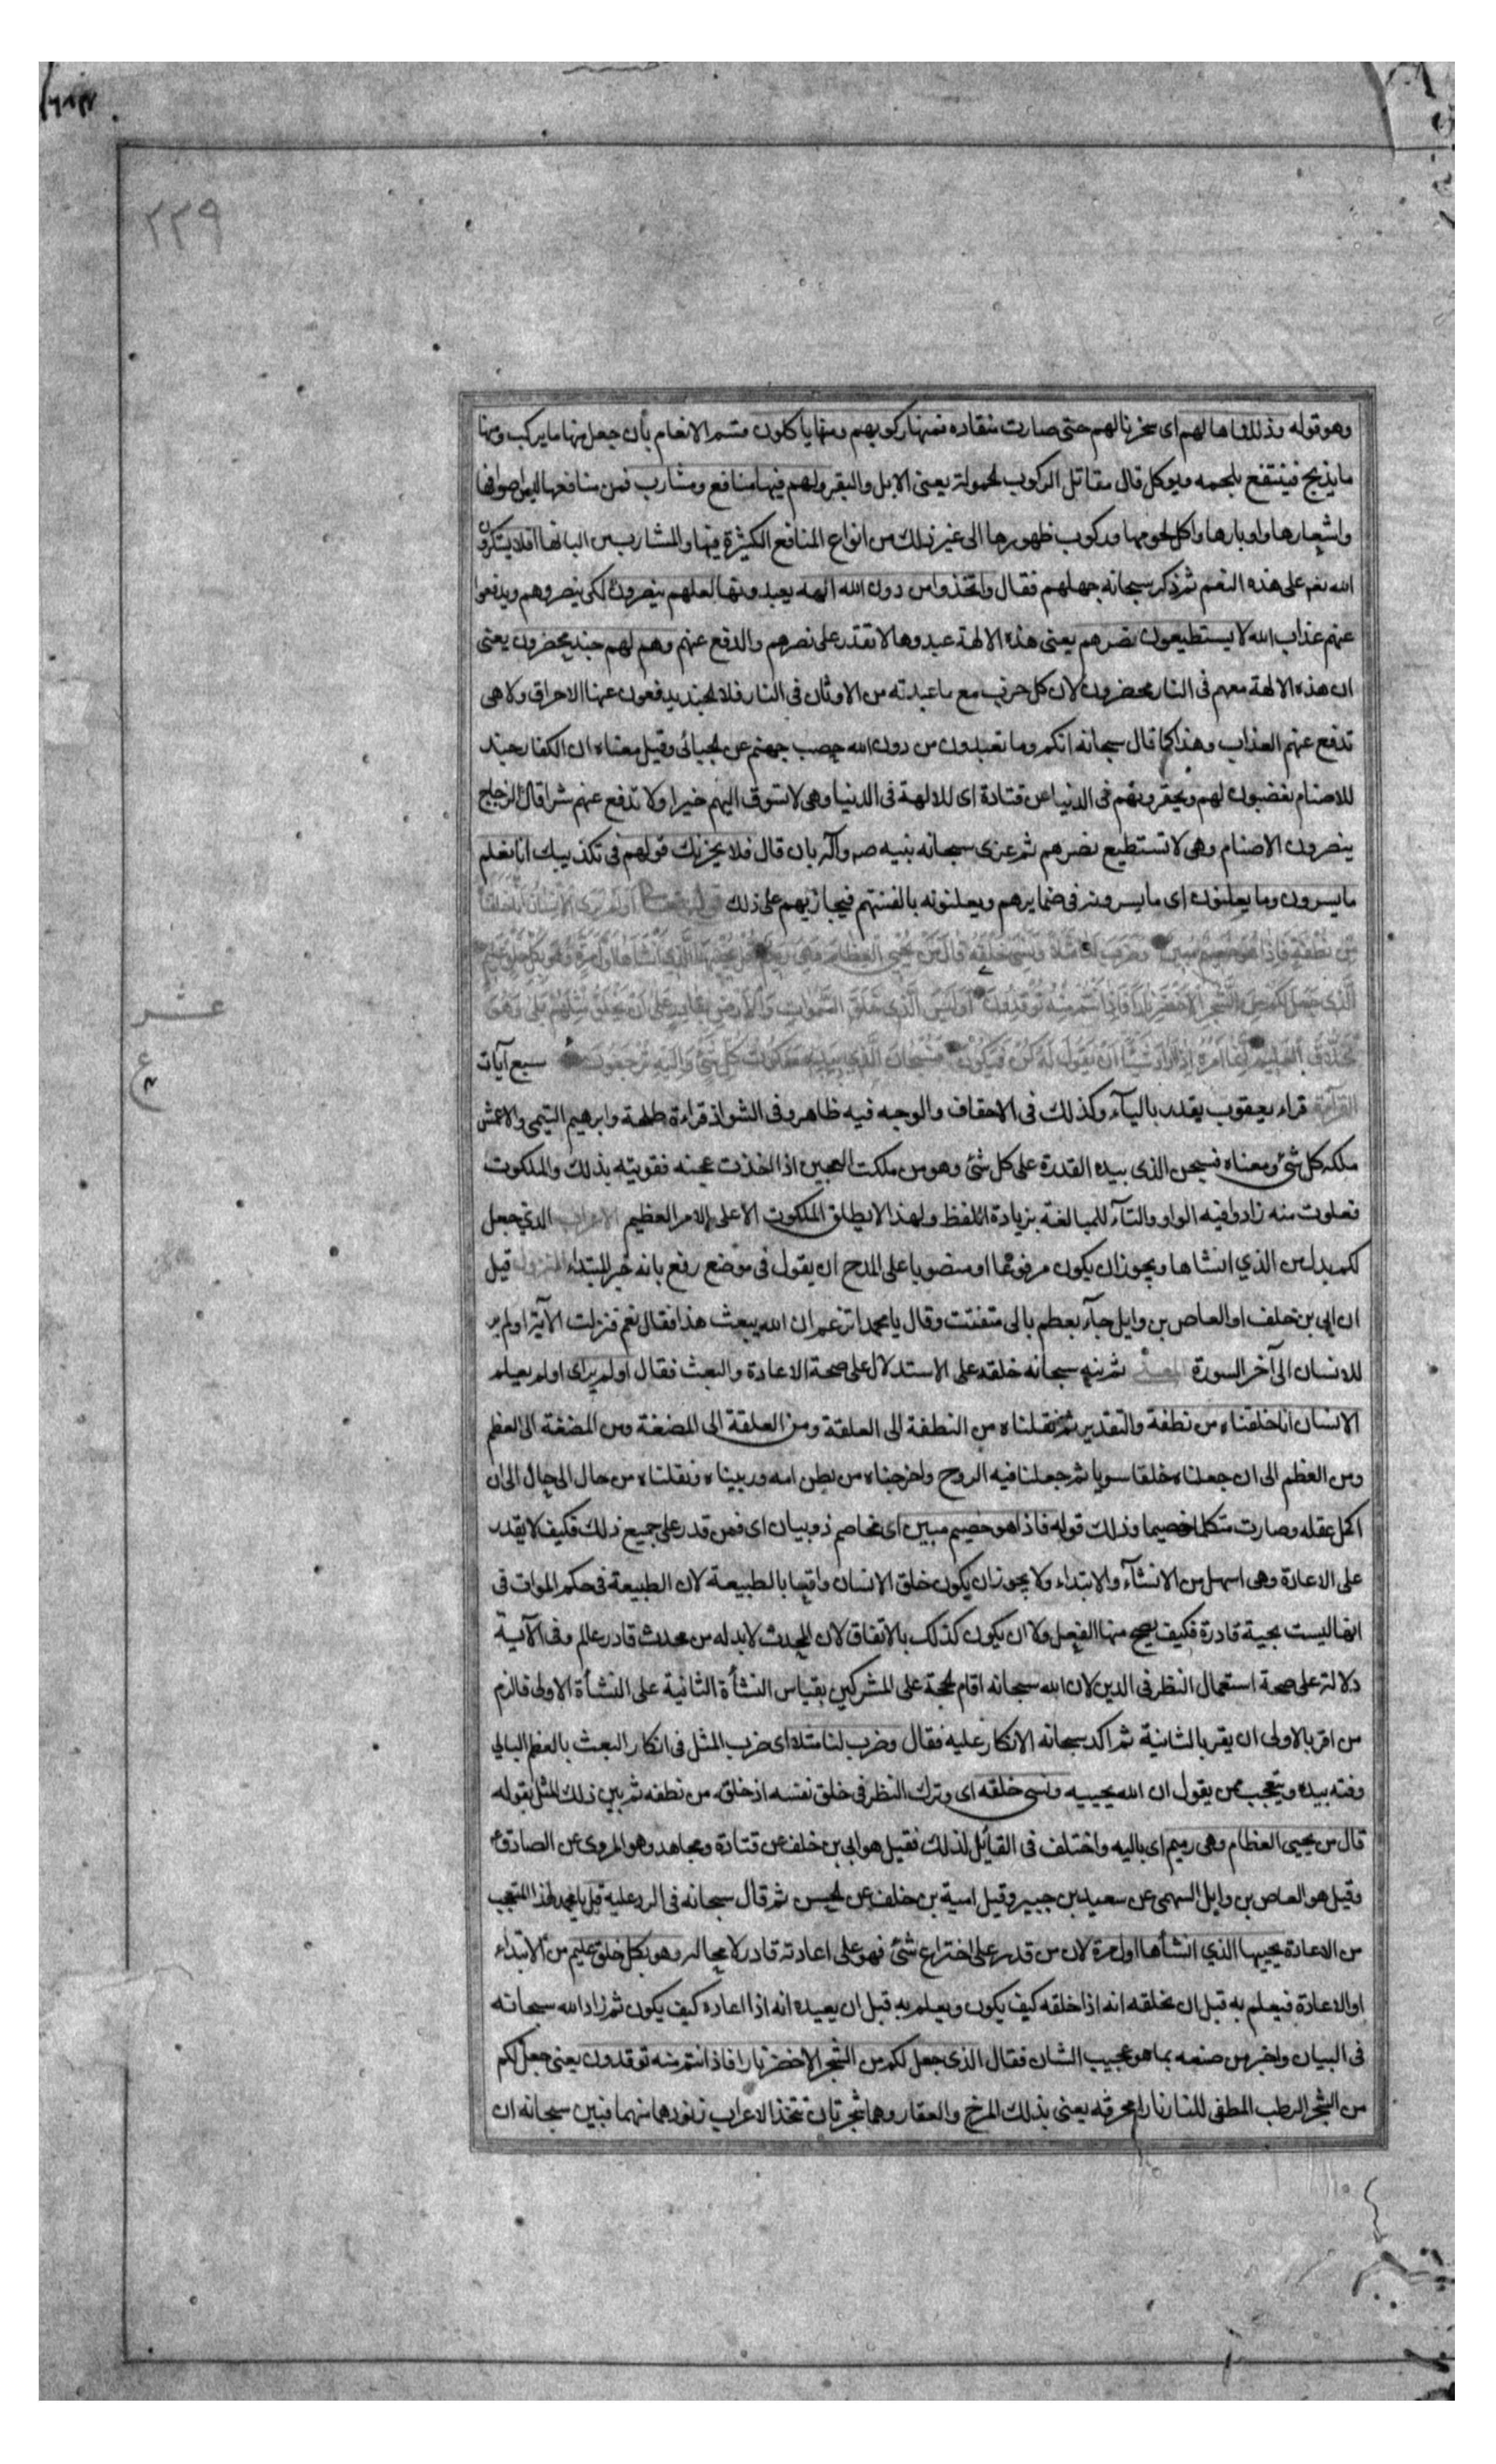 ٢٢٩
وهو قوله وذللناها لهم اى سخرنا لهم حتى صارت منقاده فمنها ركوبهم ومنها ياكلون قسم الانعام بأن جعل منها ما يركب ومنها
ما يذبح فينتفع بلحمه ويوكل قال مقاتل الركوب الحمولة يعنى الابل والبقر ولهم فيها منافع ومشارب فمن منافعها لبس اصوافها
واشعارها واوبارها واكل لحومها وركوب ظهورها الى غير ذلك من انواع المنافع الكثيرة فيها والمشارب من البانها افلا يشكرون
الله نعم على هذه النعم ثم ذكر سبحانه جهلهم فقال واتخذوا من دون الله الهه يعبدونها لعلهم ينصرون لكى ينصروهم ويدفعوا
عنهم عذاب الله لا يستطيعون نصرهم يعنى هذه الالهة عبدوها لا تقدر على نصرهم والدفع عنهم وهم لهم جند محضرون يعنى
ان هذه الالهة معهم فى النار محضرون لان كل حزب مع ما عبدته من الاوثان فى النار فلا الجند يدفعون عنها الاحراق ولا هى
تدفع عنهم العذاب وهذا كما قال سبحانه انكم وما تعبدون من دون الله حصب جهنم عن الجبائى وقيل معناه ان الكفار جند
للاصنام يغضبون لهم ويحضرونهم فى الدنيا عن قتادة اى للالهة فى الدنيا وهى لا تسوق اليهم خيرا ولا تدفع عنهم شرا قال الزجاج
ينصرون الاصنام وهى لا تستطيع نصرهم ثم عزى سبحانه نبيه صم وآله بان قال فلا يحزنك قولهم فى تكذيبك انا نعلم
ما يسرون وما يعلنون اى ما يسرونه فى ضمايرهم ويعلنونه بالسنتهم فيجازيهم على ذلك قوله تعالى أولم ير الإنسان أنا خلقناه
من نطفة فإذا هو خصيم مبين وضرب لنا مثلا ونسي خلقه قال من يحيي العظام وهي رميم قل يحييها الذي أنشأها أول مرة وهو بكل خلق عليم
الذي جعل لكم من الشجر الأخضر نارا فإذا أنتم منه توقدون أوليس الذي خلق السموات والأرض بقادر على أن يخلق مثلهم بلى وهو
الخلاق العليم إنما أمره إذا أراد شيئا أن يقول له كن فيكون فسبحان الذي بيده ملكوت كل شئ وإليه ترجعون سبع آيات
عشر
ع
القرآءة قراء يعقوب يقدر باليآء وكذلك فى الاحقاف والوجه فيه ظاهر وفى الشواذ قراءة طلحة وابرهيم التيمى والاعمش
ملكه كل شئ ومعناه فسبحن الذى بيده القدرة على كل شئ وهو من ملكت العجين اذا اخذت عجنه فقويته بذلك والملكوت
فعلوت منه زادوا فيه الواو والتآء للمبالغة بزيادة اللفظ ولهذا لا يطلق الملكوت الا على الامر العظيم الاعراب الذي جعل
لكم بدل من الذي انشاها ويجوز ان يكون مرفوعا او منصوبا على المدح ان يقول فى موضع رفع بانه خبر المبتداء النزول قيل
ان ابى بن خلف او العاص بن وايل جآء بعظم بالى متفتت وقال يا محمد اتزعم ان الله يبعث هذا فقال نعم فنزلت الآية اولم ير
للانسان الى آخر السورة المعنى ثم نبه سبحانه خلقه على الاستدلال على صحة الاعادة والبعث فقال اولم ير اى اولم يعلم
الانسان انا خلقناه من نطفة والتقدير ثم نقلناه من النطفة الى العلقة ومن العلقة الى المضغة ومن المضغة الى العظم
ومن العظم الى ان جعلناه خلقا سويا ثم جعلنا فيه الروح واخرجناه من بطن امه وربيناه ونقلناه من حال الى حال الى ان
اكمل عقله وصارت متكلما خصيما وذلك قوله فاذا هو خصيم مبين اى مخاصم ذو بيان اى فمن قدر على جميع ذلك فكيف لا يقدر
على الاعادة وهى اسهل من الانشآء والابتداء ولا يجوز ان يكون خلق الانسان واقعا بالطبيعة لان الطبيعة فى حكم الموات فى
انها ليست بحية قادرة فكيف يصح منها الفعل ولا ان يكون كذلك بالاتفاق لان المحدث لابد له من محدث قادر عالم وفى الآية
دلالة على صحة استعمال النظر فى الدين لان الله سبحانه اقام الحجة على المشركين بقياس النشأة الثانية على النشأة الاولى فالزم
من اقر بالاولى ان يقر بالثانية ثم اكد سبحانه الانكار عليه فقال وضرب لنا مثلا اى ضرب المثل فى انكار البعث بالعظم البالي
وفته بيده ويتعجب ممن يقول ان الله يحييه ونسى خلقه اى وترك النظر فى خلق نفسه اذ خلق من نطفه ثم بين ذلك المثل بقوله
قال من يحيى العظام وهى رميم اى باليه واختلف فى القائل لذلك فقيل هو ابى بن خلف عن قتادة ومجاهد وهو المروى عن الصادق ع
وقيل هو العاص بن وايل السهمى عن سعيد بن جبير وقيل امية بن خلف عن الحسن ثم قال سبحانه فى الرد عليه قل يا محمد لهذا المتعجب
من الاعادة يحييها الذي انشأها اول مرة لان من قدر على اختراع شئ فهو على اعادته قادر لا محاله وهو بكل خلق عليم من الابتداء
او الاعادة فيعلم به قبل ان يخلقه انه اذا خلقه كيف يكون ويعلم به قبل ان يعيده انه اذا اعاده كيف يكون ثم زاد الله سبحانه
فى البيان واخبر من صنعه بما هو عجيب الشان فقال الذى جعل لكم من الشجر الاخضر نارا فاذا انتم منه توقدون يعنى جعل لكم
من الشجر الرطب المطفى للنار نارا محرقه يعنى بذلك المرخ والعفار وهما شجرتان تتخذ الاعراب زنودها منهما فبين سبحانه ان